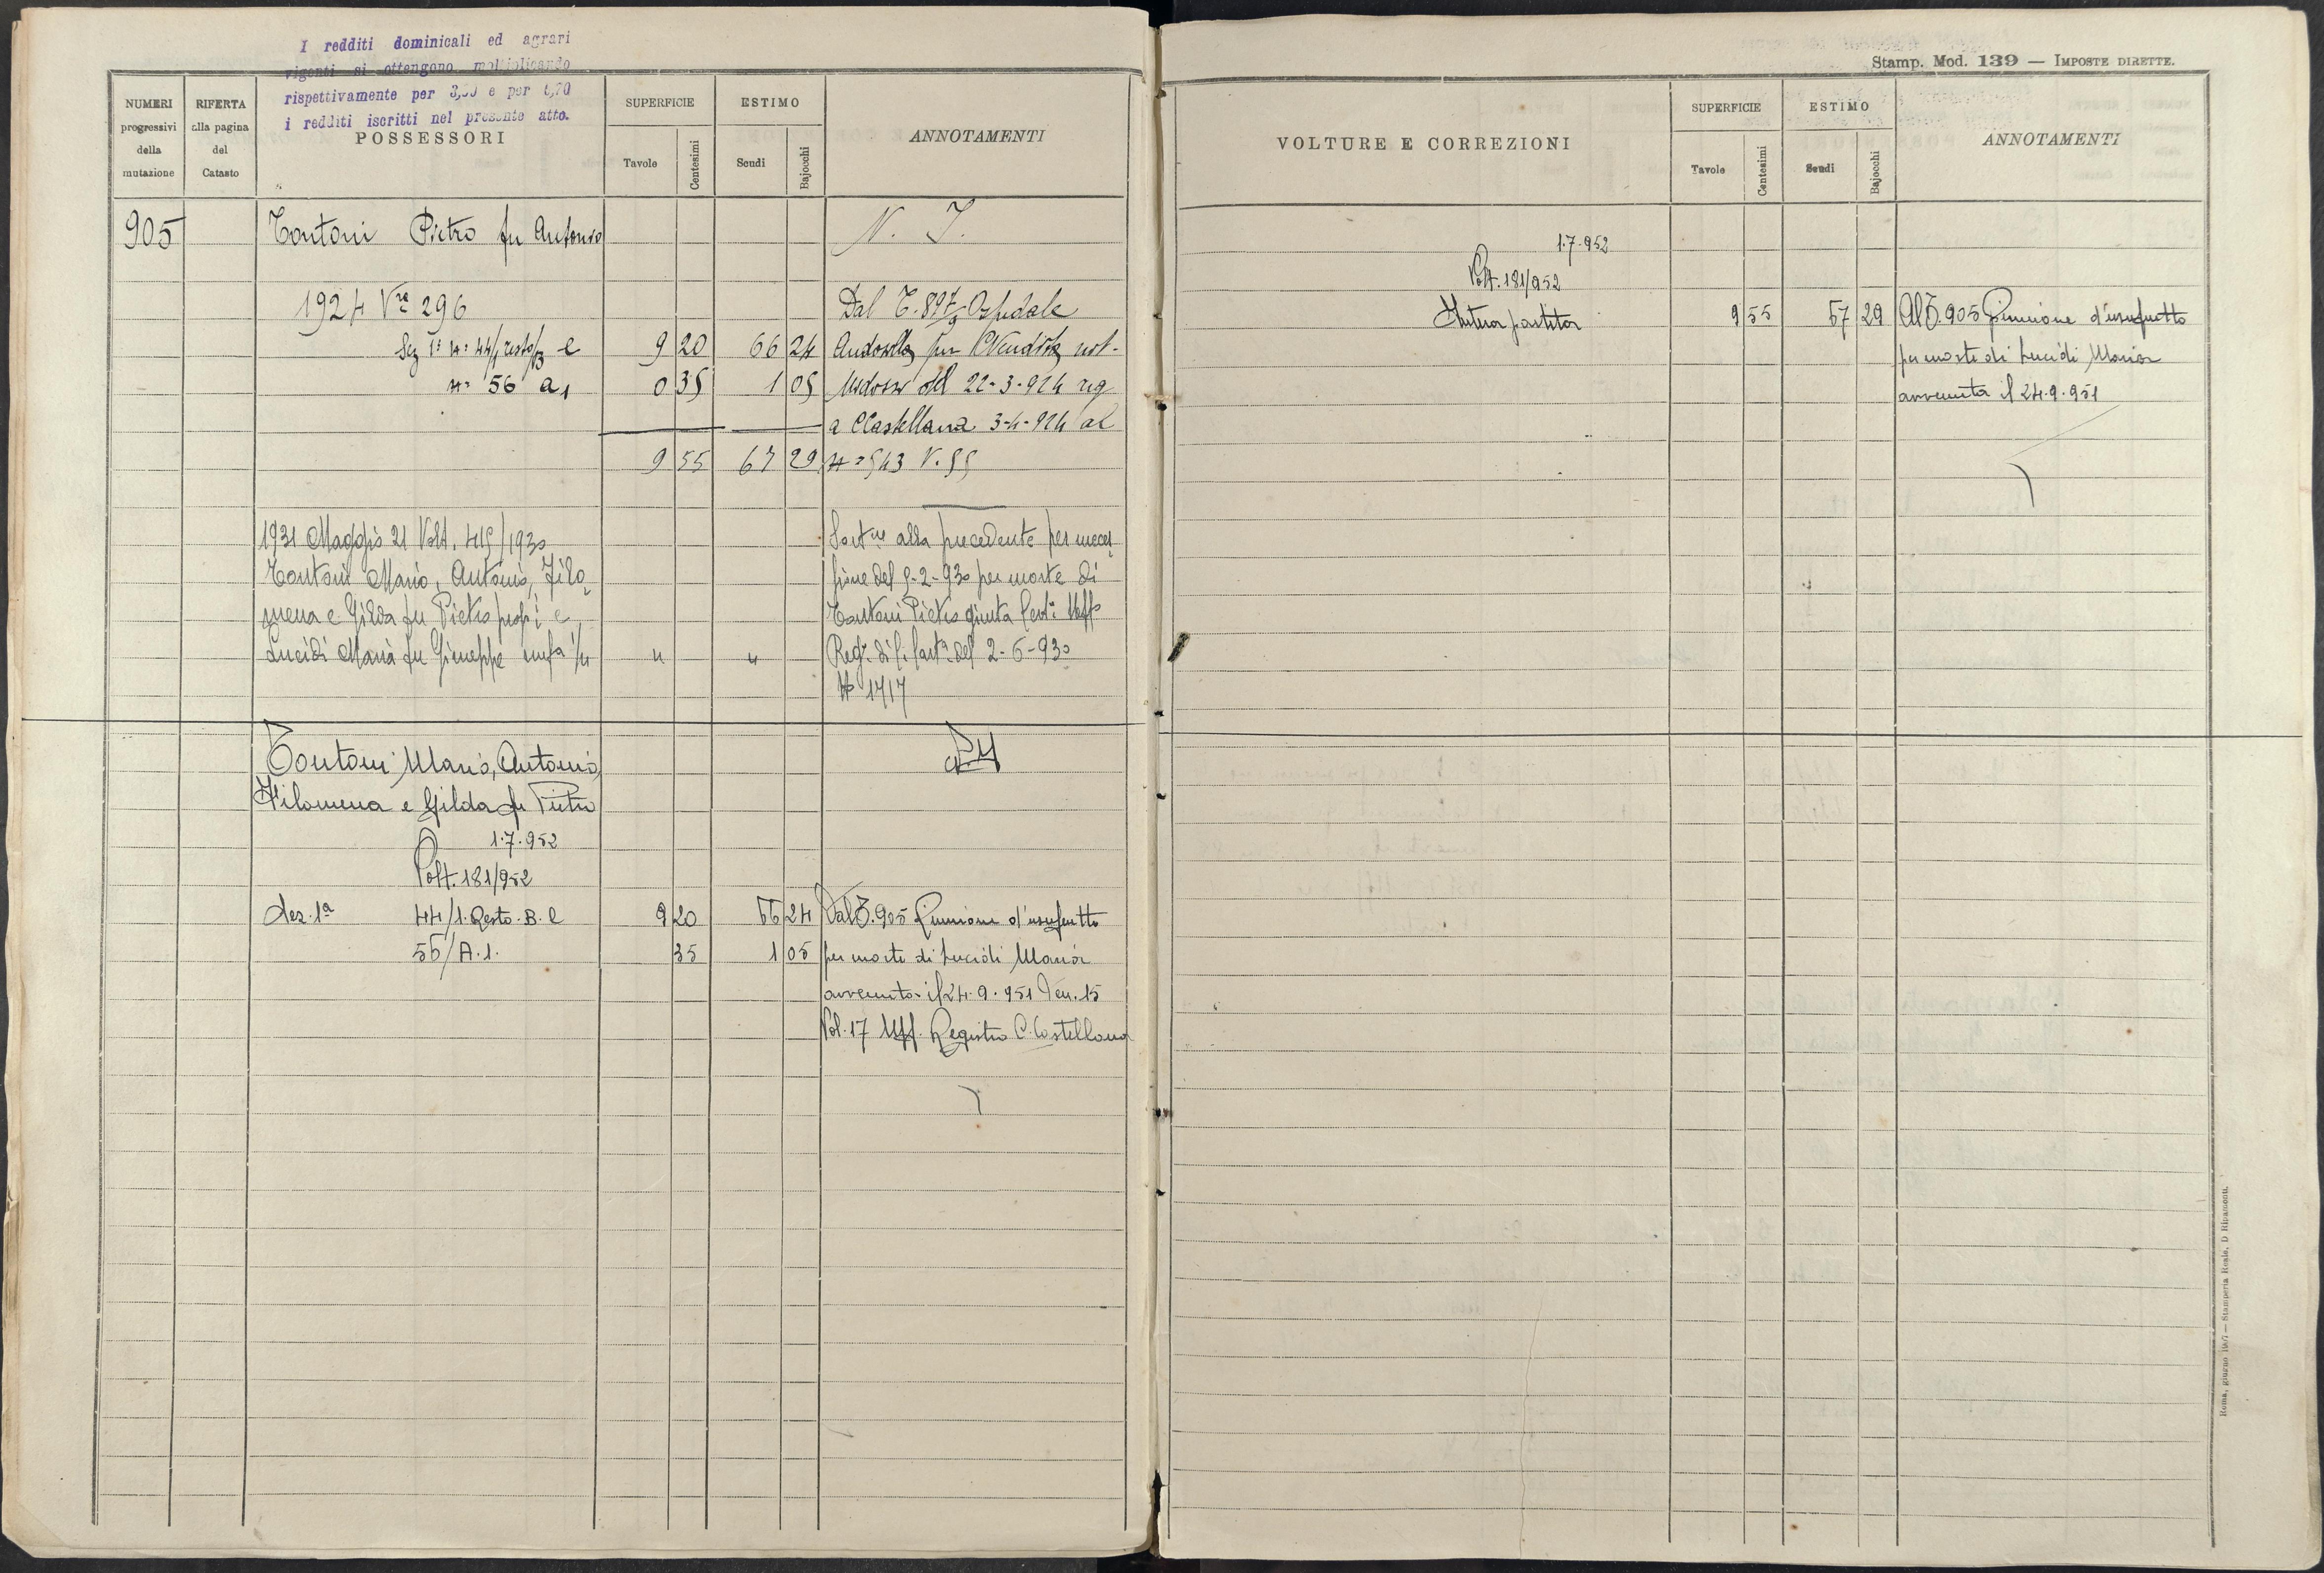 I redditi dominicali ed agrari
vigenti si ottengono moltiplicando
rispettivamente per e per
i redditi iscritti nel presente atto.
NUMERI progressivi della mutazione
RIFERTA alla pagina del Catasto
POSSESSORI
SUPERFICIE
Tavole
Centesimi
ESTIMO
Scudi
Bajocchi
ANNOTAMENTI
905 Tontoni Pietro fu Antonio N. I.
1924 Vra 296 Dal T. 897 Ospedale
Sez 1a n= 44/1 resto/B e 9 20 66 24 Andosilla per CVendita not.
n= 56 a1 0 35 1 05 del 22-3-924 reg
a CCastellana 3-4-924 al
9 55 67 29 n= 543 V. 55
1931 Maggio 21 Volt. 419/1930 alla precedente per succes
Tontoni Mario, Antonio, Filo sione del 9-2-930 per morte di
mena e Gilda fu Pietro propri e Tontoni Pietro giusta
Lucidi Maria fu Giuseppe usufa 1/4 " " Regro di C. Castna del 2-6-930
No 1717
Tontoni Mario, Antonio,
Filomena e Gilda fu Pietro
1.7.952
Volt. 181/952
Sez. 1a 44/1. Resto. B. e 9 20 66 24 Dal T. 905 Riunione d'usufrutto
56/A.1. 35 1 05 per morte di Lucidi Maria
avvenuta il 24.9.951 Den. 15
Vol. 17 Uff. Registro C. Castellana
Stamp. Mod. 139 — IMPOSTE DIRETTE.
VOLTURE E CORREZIONI
SUPERFICIE
Tavole
Centesimi
ESTIMO
Scudi
Bajocchi
ANNOTAMENTI
1.7.952
Volt. 181/952
Intera partita 9 55 67 29 Al T. 905 Riunione d'usufrutto
per morte di Lucidi Maria
avvenuta il 24.9.951
Roma, giugno — Stamperia Reale, D Ripamonti.